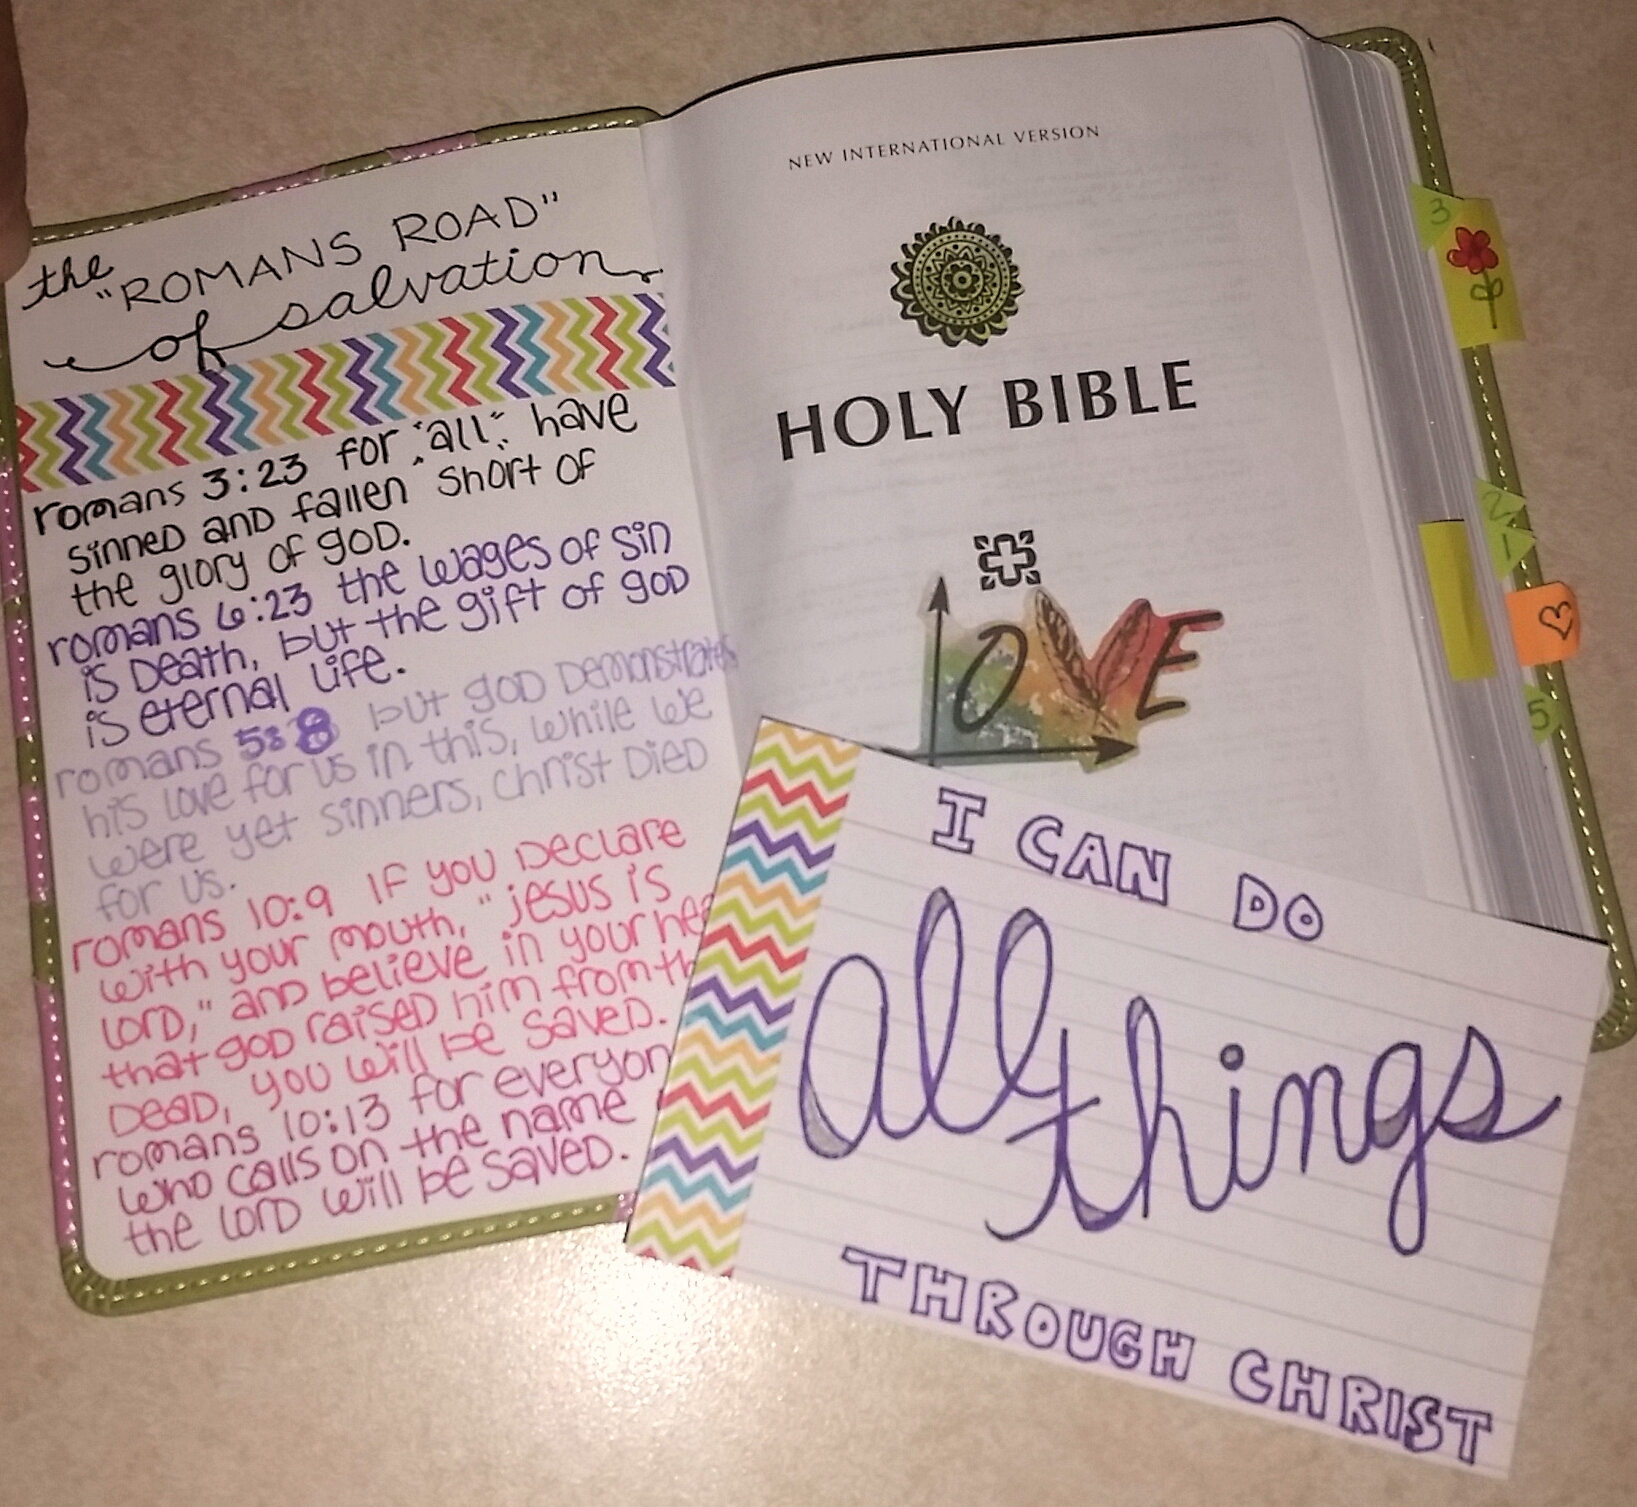 the "ROMANS ROAD"
of salvation
romans 3:23 for "all" have
sinned and fallen short of
the glory of god.
romans 6:23 the wages of sin
is death, but the gift of god
is eternal life.
romans 5:8 but god demonstrates
his love for us in this, while we
were yet sinners, christ died
for us.
romans 10:9 if you declare
with your mouth, "jesus is
lord," and believe in your
that god raised him from
dead, you will be saved.
romans 10:13 for
who calls on the name
the lord will be saved.
NEW INTERNATIONAL VERSION
HOLY BIBLE
LOVE
I CAN DO
all
things
THROUGH CHRIST
3
2
1
5